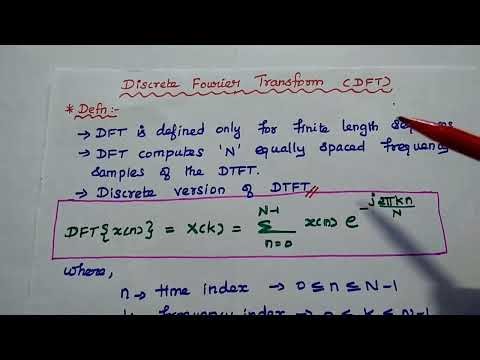 Discrete Fourier Transform (DFT)
* Defn:-
→ DFT is defined only for finite length sequences
→ DFT computes 'N' equally spaced frequency
samples of the DTFT.
→ Discrete version of DTFT //
DFT{x(n)} = X(k) = N-1 Σ n=0 x(n) e^-j2πkn/N
where,
n → time index → 0 ≤ n ≤ N-1
k → frequency index → 0 ≤ k ≤ N-1